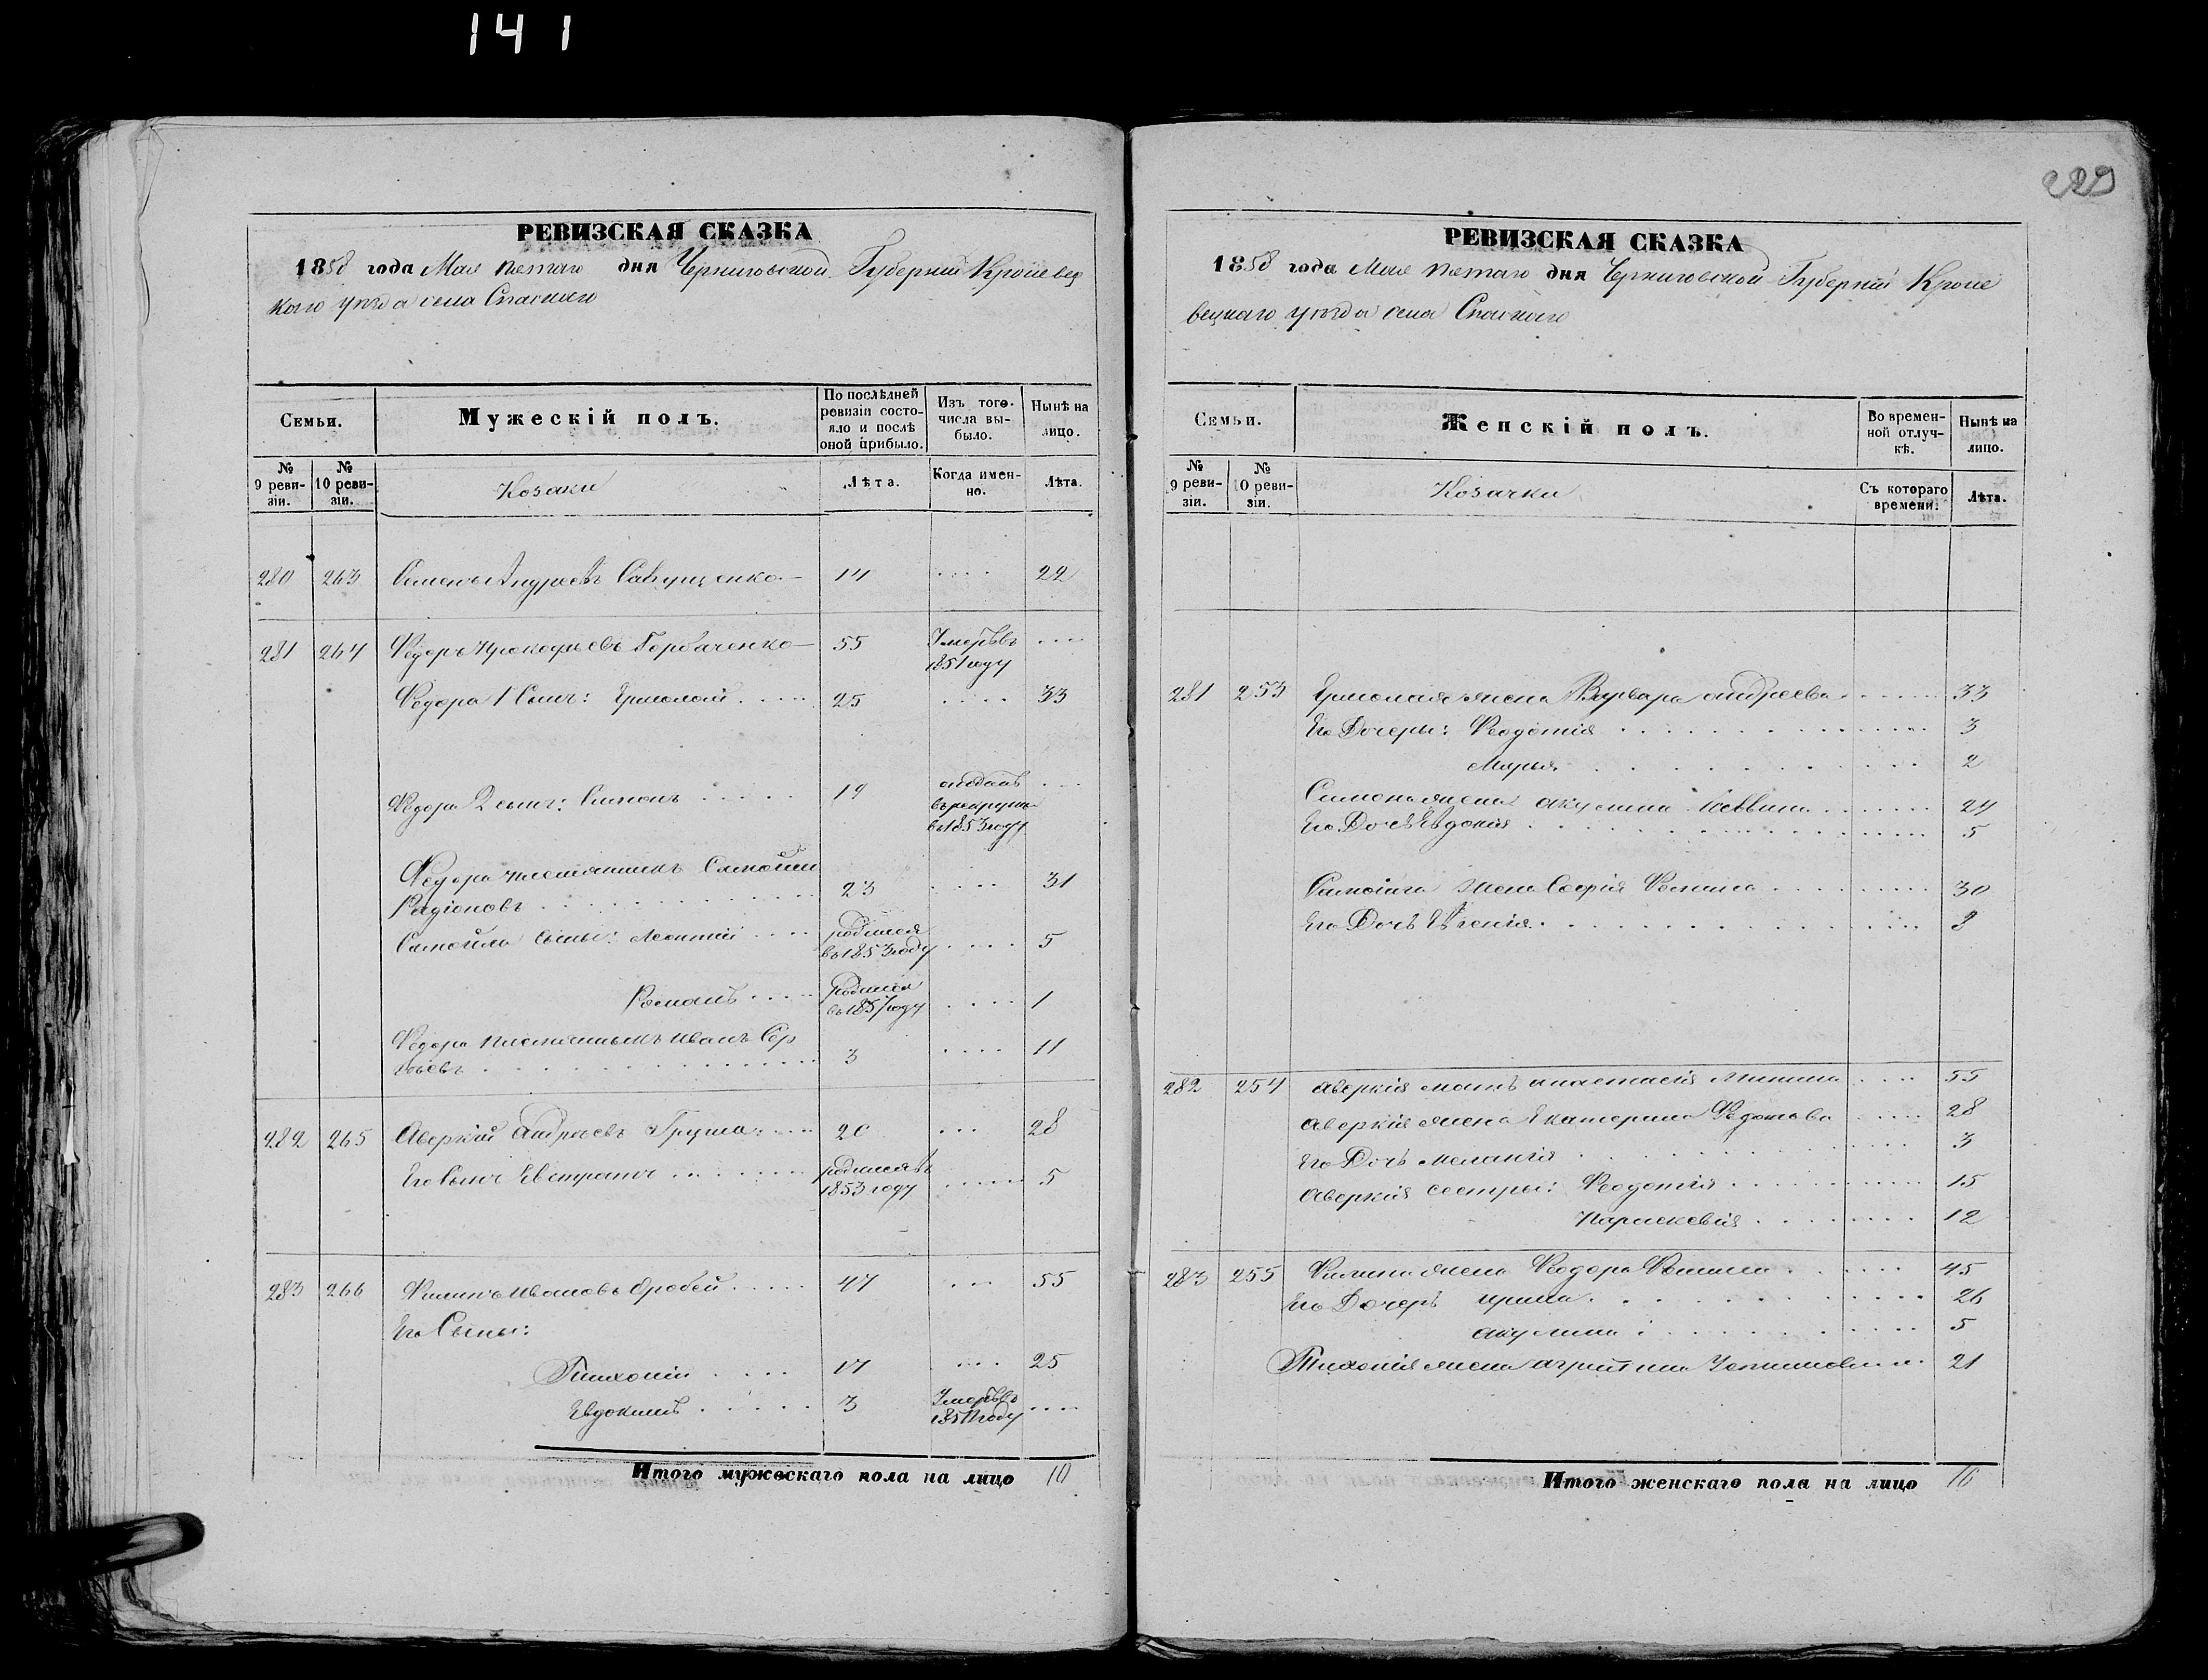 141
229
РЕВИЗСКАЯ СКАЗКА
1858 года Мая пятаго дня Черниговской Губерніи Кролевец
каго уѣзда села Спаскаго
Семьи.
Мужескій полъ.
По послѣдней ревизіи состояло и послѣ оной прибыло.
Изъ того числа выбыло.
Нынѣ на лицо.
№ 9 ревизіи.
№ 10 ревизіи.
Козаки
Лѣта.
Когда именно.
Лѣта.
280 263 Семенъ Андреевъ Савущенко 14 .... 22
281 264 Федоръ Прокофьевъ Горбаченко 55 Умеръ въ 1851 году ....
Федора 1 сынъ: Ермолай .... 25 .... 33
Федора 2 сынъ: Симонъ ..... 19 отданъ в рекруты в 1853 году ...
Федора племянникъ Самойло
Радіоновъ 23 .... 31
Самойла сыны: Леонтій .... родился в 1853 году .... 5
Романъ .... родился в 1857 году .... 1
Федора племянникъ Иванъ Сер
гѣевъ 3 .... 11
282 265 Аверкій Андреевъ Груша 20 ... 28
Его сынъ Евстратъ родился въ 1853 году ..... 5
283 266 Филипъ Ивановъ 47 ... 55
Его Сыны:
Тихоній .... 17 .... 25
Евдокимъ ..... 3 Умеръ въ году ....
Итого мужескаго пола на лицо 10
РЕВИЗСКАЯ СКАЗКА
1858 года Мая пятаго дня Черниговской Губерніи Кроле
вецкаго уѣзда села Спаскаго
Семьи.
Женскій полъ.
Во временной отлучкѣ.
Нынѣ на лицо.
№ 9 ревизіи.
№ 10 ревизіи.
Козачки
Съ котораго времени.
Лѣта.
281 253 Ермолая жена Варвара Андреева 33
Его Дочеры: Феодотія 3
Марья 2
Симона жена Акулина 24
Его Дочь Евдокія 5
Самойла жена Софія Фомина 30
Его Дочь Евгенія 8
282 254 Аверкія мать Анастасія Минина .... 55
Аверкія жена Екатерина Федотова 28
Его Дочь Меланія 3
Аверкія сестры: Феодотія 15
Параскевія 12
283 255 Филипа жена Феодора Фомина 45
Его Дочеръ Ирина 26
Акулина 5
Тихонія жена 21
Итого женскаго пола на лицо 16